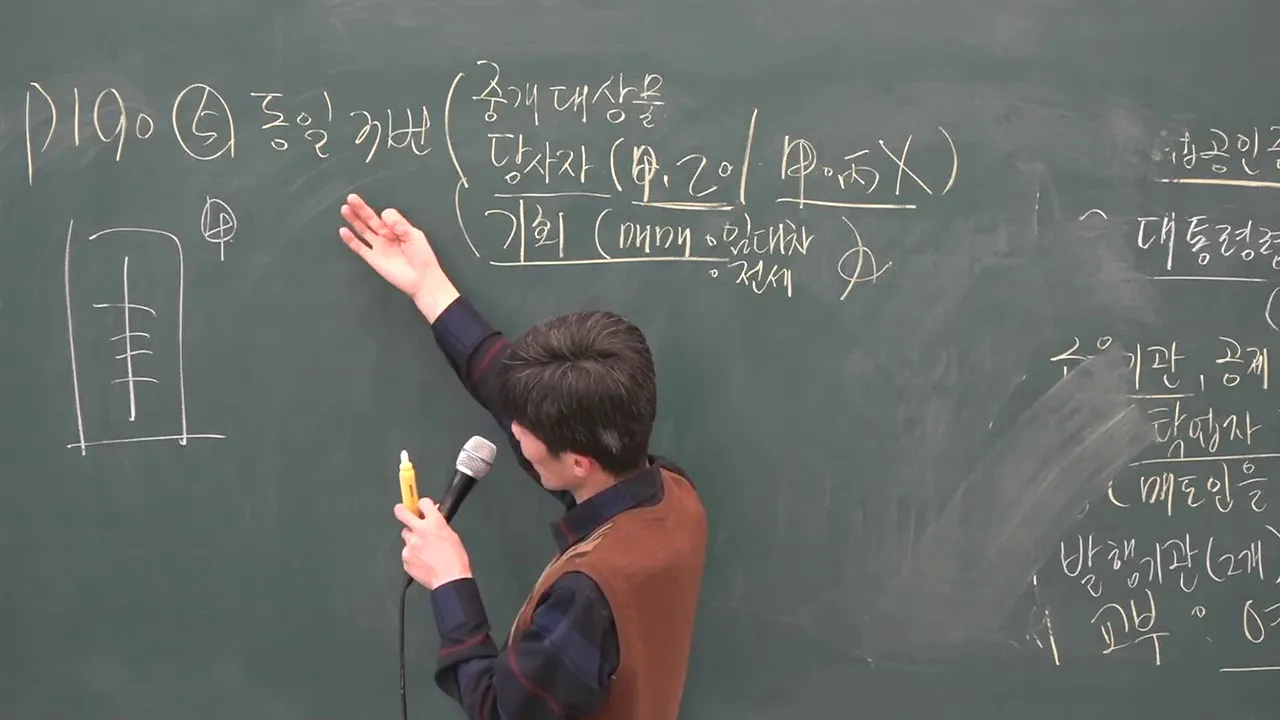 P190 ⑤ 동일
중개대상물
당사자 (甲, 乙이 甲, 丙 X)
기회 (매매 임대차
전세
甲
공인중
대통령령
기관, 공제
탁업자
(매도인을
발행기관(2개)
교부 :